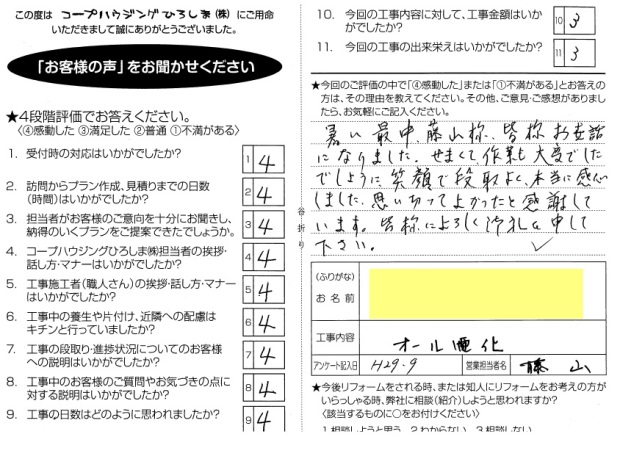 この度は コープハウジングひろしま(株) にご用命
いただきまして誠にありがとうございました。
「お客様の声」をお聞かせください
★4段階評価でお答えください。
〈④感動した ③満足した ②普通 ①不満がある〉
1. 受付時の対応はいかがでしたか?
1 4
2. 訪問からプラン作成、見積りまでの日数
(時間)はいかがでしたか?
2 4
3. 担当者がお客様のご意向を十分にお聞きし、
納得のいくプランをご提案できたでしょうか。
3 4
4. コープハウジングひろしま㈱担当者の挨拶・
話し方・マナーはいかがでしたか?
4 4
5. 工事施工者(職人さん)の挨拶・話し方・マナー
はいかがでしたか?
5 4
6. 工事中の養生や片付け、近隣への配慮は
キチンと行っていましたか?
6 4
7. 工事の段取り・進捗状況についてのお客様
への説明はいかがでしたか?
7 4
8. 工事中のお客様のご質問やお気づきの点に
対する説明はいかがでしたか?
8 4
9. 工事の日数はどのように思われましたか?
9 4
谷折り
10. 今回の工事内容に対して、工事金額はいか
がでしたか?
10 3
11. 今回の工事の出来栄えはいかがでしたか?
11 3
★今回のご評価の中で「④感動した」または「①不満がある」とお答えの
方は、その理由を教えてください。その他、ご意見・ご感想がありまし
たら、お気軽にご記入ください。
暑い最中、藤山様、皆様お世話
になりました。せまくて、作業も大変でした
でしょうに、笑顔で段取よく、本当に感心
しました。思い切ってよかったと感謝して
います。皆様によろしく御礼申して
下さい。
(ふりがな)
お名前
工事内容
オール電化
アンケート記入日
H29.9
営業担当者名
藤山
★今後リフォームをされる時、または知人にリフォームをお考えの方が
いらっしゃる時、弊社に相談(紹介)しようと思われますか?
〈該当するものに○をお付けください〉
1.相談しようと思う 2.わからない 3.相談しない